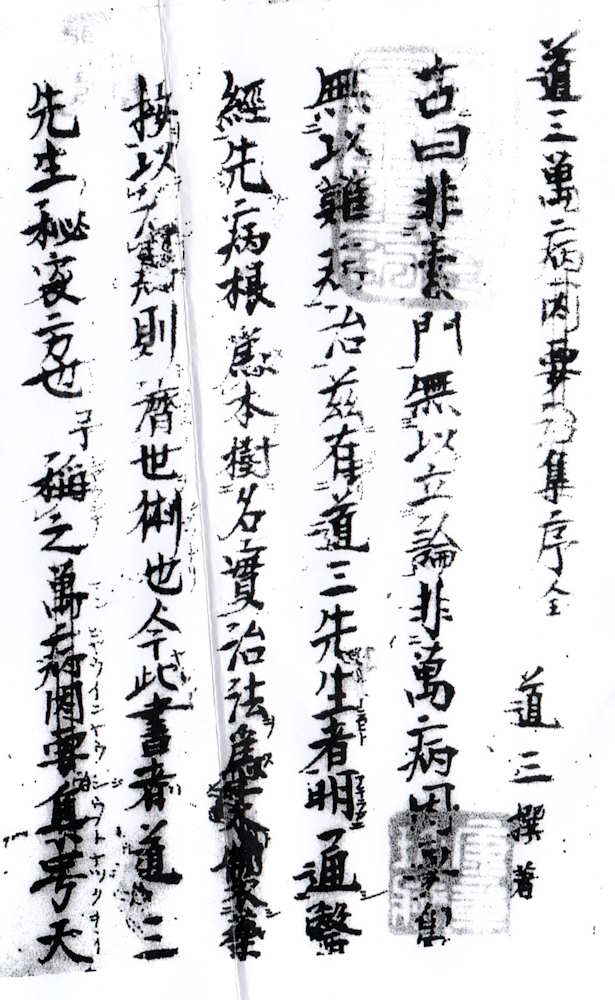 道三萬病因要集序全
道三撰著
古曰非素門無以立論非萬病因要集
無以雖対治茲有道三先生者明通醫
經先病根為本樹名實治法為末製薬
按以則濟世術也今此書者道三
先生秘家方也予稱之萬病因要集芳天